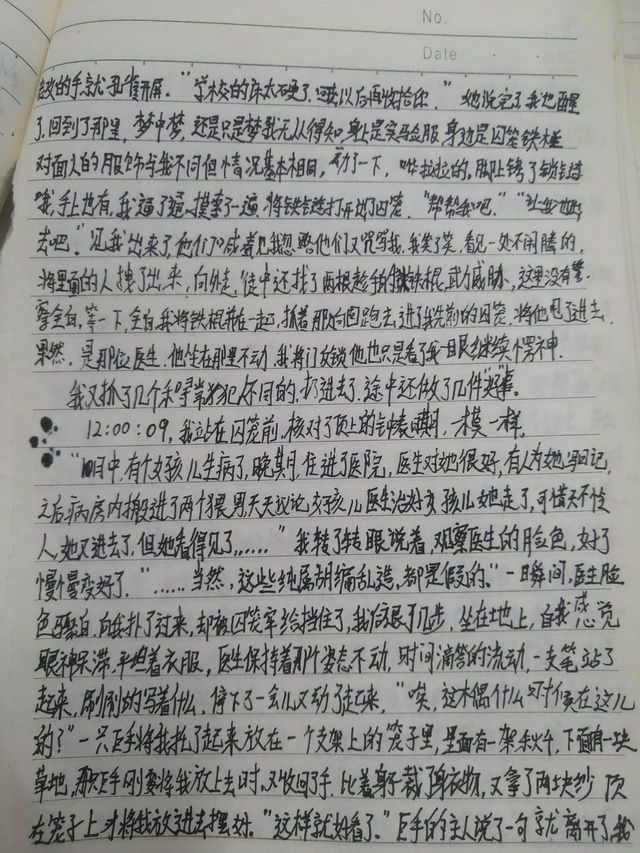 No.
Date
的手就孔雀开屏。"学校的床太硬了,以后再收拾你。"她说完了,我也醒
了,回到了那里,梦中梦,还是只是梦我无从得知,身上是实验服,身边是囚笼铁柱
对面人的服饰与我不同但情况基本相同,动了一下,哗拉拉的,脚上锈了锁链
哦,手上也有,我逼了逼,摸索了一遍,将铁链打开出了囚笼。"帮帮我吧。""让我也出
去吧。"见我出来了,他们喊着见我忽略他们又咒骂我,我笑了笑,看见一处不闹腾的,
将里面的人拽了出来,向外走,途中还找了两根趁手的铁棍,武力威胁,这里没有警
察全自,等一下,全自我将铁棍并在一起,抓着那向回跑去,进了我先前的囚笼,将他甩了进去
果然,是那位医生,他坐在那里不动,我将门放锁他也只是看了我一眼继续愣神.
我又抓了几个和寻常犯人不同的,扔进去了,途中还做了几件"好事"。
12:00:09,我站在囚笼前,核对了顶上的钟表,一模一样,
中,有个女孩儿生病了,晚期,住进了医院,医生对她很好,有人为她写日记,
之后病房内搬进了两个猥男天天议论女孩儿医生治好女孩儿她走了,可惜天不怜
人,她又进去了,但她看得见了……"我转了转眼说着,观察医生的脸色,好了
慢慢变好了,"……当然,这些纯属胡编乱造,都是假的。"一瞬间,医生脸
色白,向我扑了过来,却被囚笼牢给挡住了,我后退了几步,坐在地上,自我感觉
眼神呆滞,平着衣服,医生保持着那个姿态不动,时间滴答的流动,一支笔站了
起来,刷刷的写着什么,停下了一会儿又动了起来,"唉,这木偶什么时候在这儿
的?"一只巨手将我抓了起来放在一个支架上的笼子里,里面有一架秋千,下面有一块
草地,那只巨手刚要将我放上去时,又收回了手,比着身子裁了身衣物,又拿了两块纱顶
在笼子上,才将我放进去摆好。"这样就好看了。"巨手的主人说了一句就离开了,我